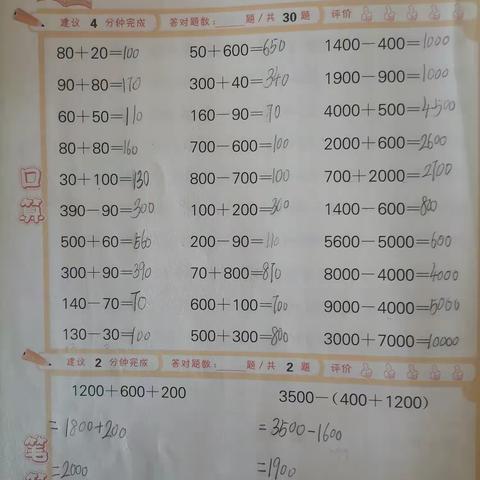 建议 4 分钟完成 答对题数: 题/共 30 题 评价
80+20=100 50+600=650 1400-400=1000
90+80=170 300+40=340 1900-900=1000
60+50=110 160-90=70 4000+500=4500
80+80=160 700-600=100 2000+600=2600
30+100=130 800-700=100 700+2000=2700
390-90=300 100+200=300 1400-600=800
500+60=560 200-90=110 5600-5000=600
300+90=390 70+800=870 8000-4000=4000
140-70=70 600+100=700 9000-4000=5000
130-30=100 500+300=800 3000+7000=10000
口算
建议 2 分钟完成 答对题数: 题/共 2 题 评价
1200+600+200 3500-(400+1200)
=1800+200 =3500-1600
=2000 =1900
笔